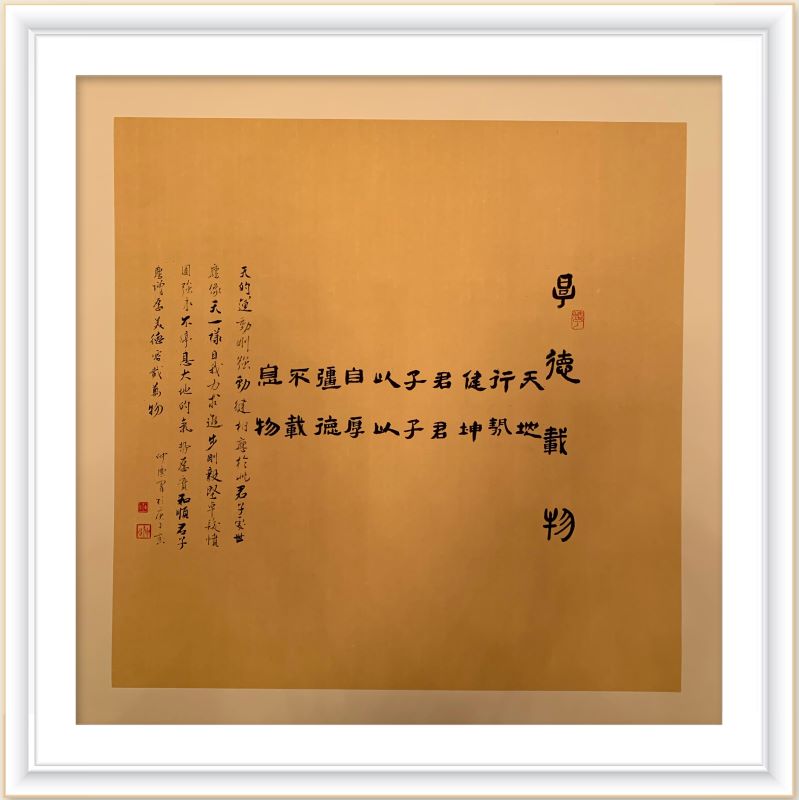 㫗德載物
天行健君子以自彊不息
地勢坤君子以厚德載物
天的運動剛強勁健相應於此君子處世
應像天一樣自我力求進步剛毅堅卓發憤
圖強永不停息大地的氣勢厚實和順君子
應增厚美德容載萬物